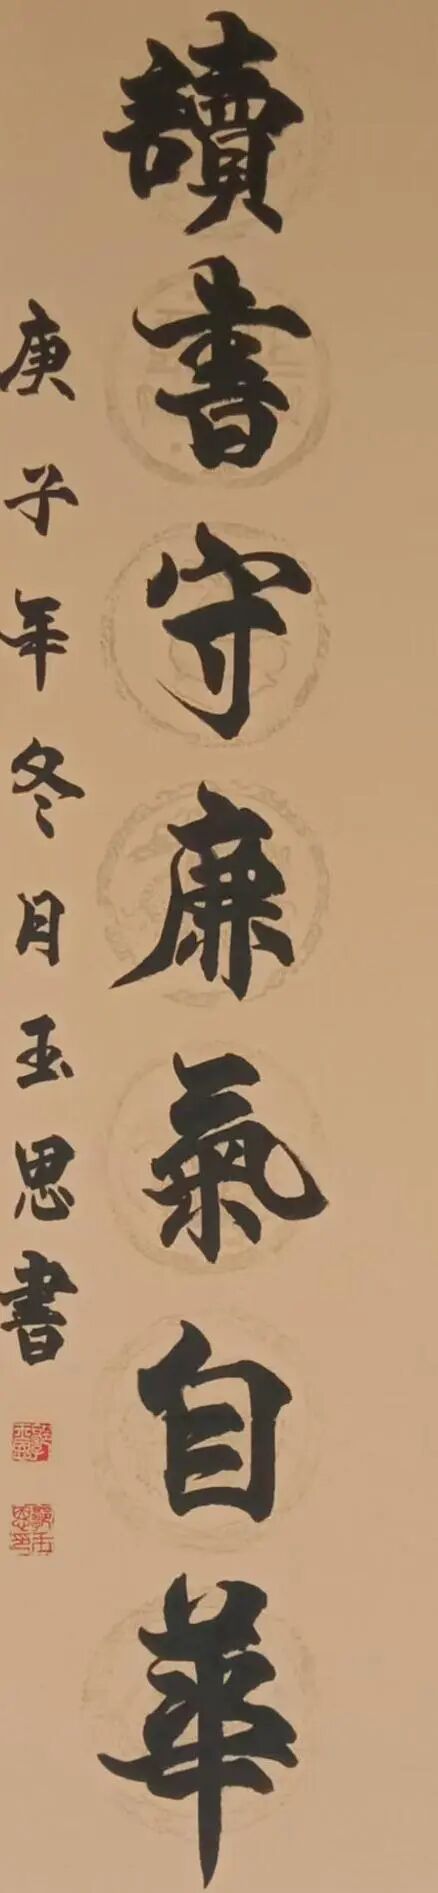 讀書守廉氣自華
庚子年冬月玉思書